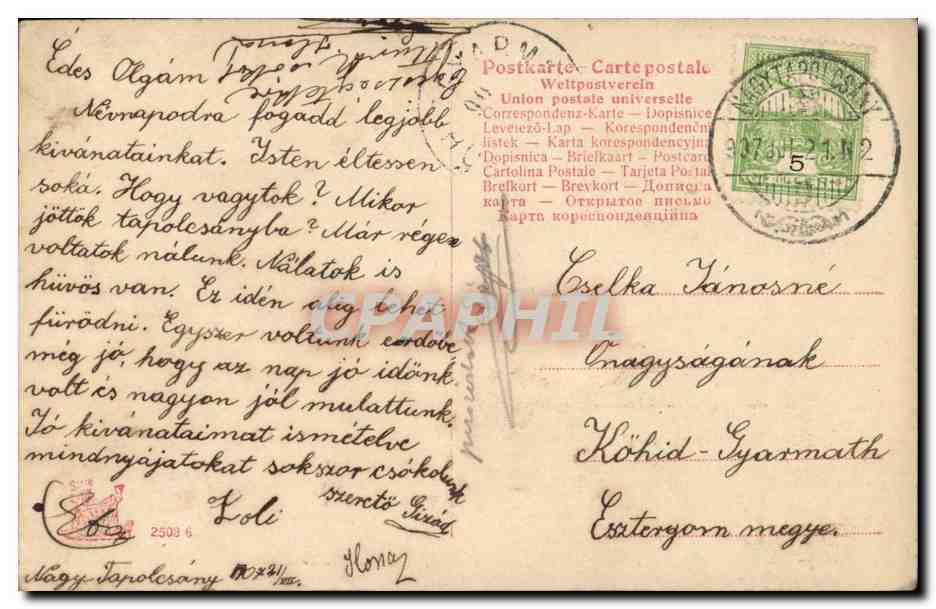 Édes Olgám
Névnapodra fogadd legjobb
kivánatainkat. Isten éltessen
soká. Hogy vagytok? Mikor
jöttök tapolcsányba? Már régen
voltatok nálunk. Nálatok is
hüvös van. Ez idén alig lehet
fürödni. Egyszer voltunk erdőbe
még jó, hogy az nap jó időnk
volt és nagyon jól mulattunk.
Jó kivánataimat ismételve
mindnyájatokat sokszor csókolunk
szerető Gizád
Zoli
Ilona
Nagy Tapolcsány
2508 6
Postkarte - Carte postale
Weltpostverein
Union postale universelle
Correspondenz-Karte - Dopisnice
Levelező-Lap - Korespondenční
lístek - Karta korespondencyjna
Dopisnica - Briefkaart - Postcard
Cartolina Postale - Tarjeta Postal
Brefkort - Brevkort - Дописна
карта - Открытое письмо
Карта кореспонденційна
NAGYTAPOLCSÁNY
907 JUL 21 N 2
5
Cselka Jánosné
Őnagyságának
Kőhid-Gyarmath
Esztergom megye.
CPAPHIL